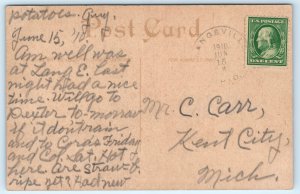 potatoes. Guy.
Post Card
June 15, '10.
Am well was
at Lang E. last
night Had a nice
time. Will go to
Dexter to-morrow
if it don't rain
and to Cora's Friday
and Sat. Hot
here are Straw-b
ripe yet? Had new
Mr. C. Carr,
Kent City,
Mich.
1910
JUN
15
U.S. POSTAGE
ONE CENT